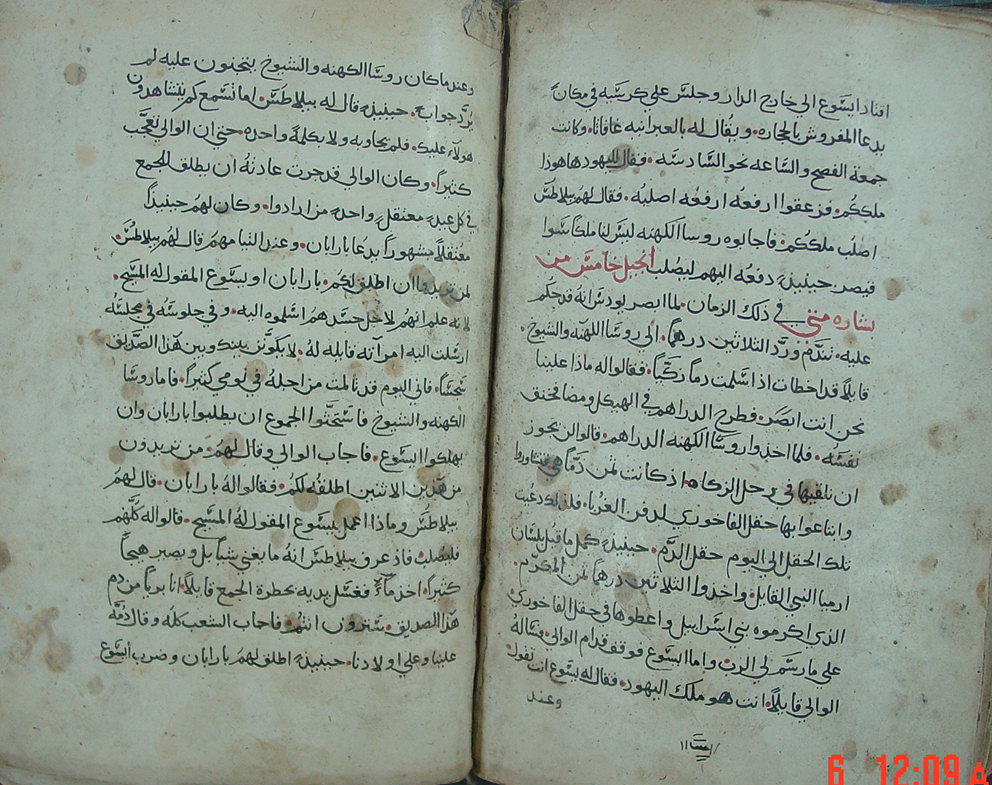 اقتاد ايسوع الي خارج الدار وجلس علي كرسيه في مكان
يدعا المفروش بالحجاره ويقال له بالعبرانيه غافاثا وكانت
جمعة الفصح والساعه نحو السادسه فقال لليهود هاهوذا
ملككم فزعقوا ارفعه ارفعه اصلبه فقال لهم بيلاطس
اصلب ملككم فاجابوه روسا الكهنه ليس لنا ملكا سوا
قيصر حينيذ دفعه اليهم ليصلب انجيل خامس من
بشاره متي في ذلك الزمان لما ابصر يودس انه قد حكم
عليه تندم ورد الثلاثين درهما الي روسا الكهنه والشيوخ
قايلا قد اخطات اذ اسلمت دما زكيا فقالوا له ماذا علينا
نحن انت ابصر فطرح الدراهم في الهيكل ومضا فخنق
نفسه فلما اخذوا روسا الكهنه الدراهم قالوا لن يجوز
ان نلقيها في الزكاه اذ كانت ثمن دم فتشاوروا
وابتاعوا بها حقل الفاخوري لدفن الغربا فلذلك دعيت
تلك الحقل الي اليوم حقل الدم حينيذ كمل ما قيل بلسان
ارميا النبي القايل واخذوا الثلاثين درهما ثمن المكرم
الذي اكرموه بني اسراييل واعطوها في حقل الفاخوري
علي ما رسم لي الرب واما ايسوع فوقف قدام الوالي فساله
الوالي قايلا انت هو ملك اليهود فقال له يسوع انت تقول
وعند
وعند ما كان روسا الكهنه والشيوخ يتجنون عليه لم
يرد جواب حينيذ قال له بيلاطس اما تسمع كم يتشاهدون
هولاء عليك فلم يجاوبه ولا بكلمة واحده حتي ان الوالي تعجب
كثيرا وكان الوالي قد جرت عادته ان يطلق للجمع
في كل عيد معتقل واحد من ارادوا وكان لهم حينيذ
معتقلا مشهورا يدعا بارابان وعند التيامهم قال لهم بيلاطس
لمن تريدوا ان اطلق لكم بارابان او يسوع المقول له المسيح
لانه علم انهم لاجل حسدهم اسلموه اليه وفي جلوسه في مجلسه
ارسلت اليه امراته قايله له لا يكون بينك وبين هذا الصديق
شيا فاني اليوم قد تالمت من اجله في نومي كثيرا فاما روسا
الكهنه والشيوخ فاستحثوا الجموع ان يطلبوا بارابان وان
يهلكوا ايسوع فاجاب الوالي وقال لهم من تريدون
من هذين الاثنين اطلقه لكم فقالوا له بارابان قال لهم
بيلاطس وماذا اعمل بيسوع المقول له المسيح قالوا له كلهم
فليصلب فاذ عرف بيلاطس انه ما يغني شيا بل ويصير هيجا
كثيرا اخذ ماء فغسل يديه بحظرة الجمع قايلا انا بريا من دم
هذا الصديق ستعرون انتم فاجاب الشعب كله وقالا دمه
علينا وعلي اولادنا حينيذ اطلق لهم بارابان وضرب ايسوع
6 12:09 A